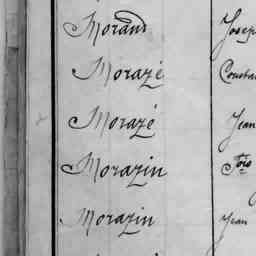 Morand Josep
Morazé Constan
Morazé Jean
Morazin Fois
Morazin Jean